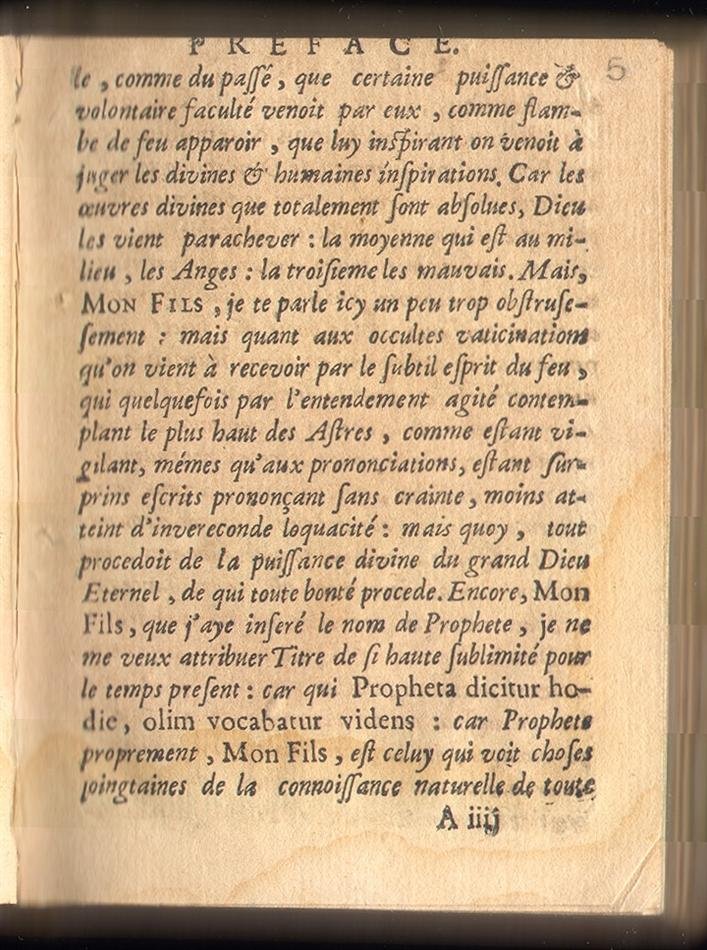 PREFACE.
5
le, comme du paſſé, que certaine puiſſance &
volontaire faculté venoit par eux, comme flam-
be de feu apparoir, que luy inſpirant on venoit à
juger les divines & humaines inſpirations. Car les
œuvres divines que totalement ſont abſolues, Dieu
les vient parachever : la moyenne qui eſt au mi-
lieu, les Anges : la troiſieme les mauvais. Mais,
MON FILS, je te parle icy un peu trop obſtruſe-
ſement : mais quant aux occultes vaticinations
qu'on vient à recevoir par le ſubtil eſprit du feu,
qui quelquefois par l'entendement agité contem-
plant le plus haut des Aſtres, comme eſtant vi-
gilant, mémes qu'aux prononciations, eſtant ſur-
prins eſcrits prononçant ſans crainte, moins at-
teint d'invereconde loquacité : mais quoy, tout
procedoit de la puiſſance divine du grand Dieu
Eternel, de qui toute bonté procede. Encore, Mon
Fils, que j'aye inſeré le nom de Prophete, je ne
me veux attribuer Titre de ſi haute ſublimité pour
le temps preſent : car qui Propheta dicitur ho-
die, olim vocabatur videns : car Prophete
proprement, Mon Fils, eſt celuy qui voit choſes
loingtaines de la connoiſſance naturelle de toute
A iiij